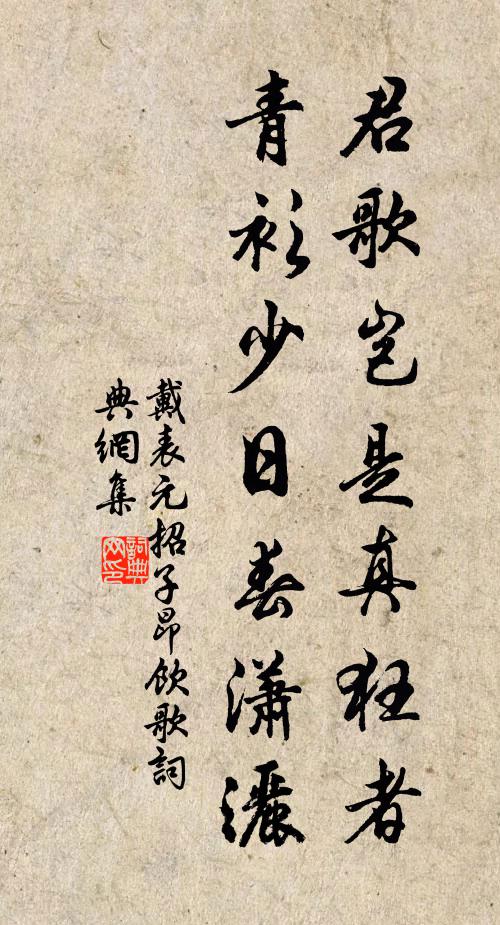 君歌岂是真狂者
青衫少日春瀟灑
戴表元招子昂飲歌詞
典網集
詞典网印